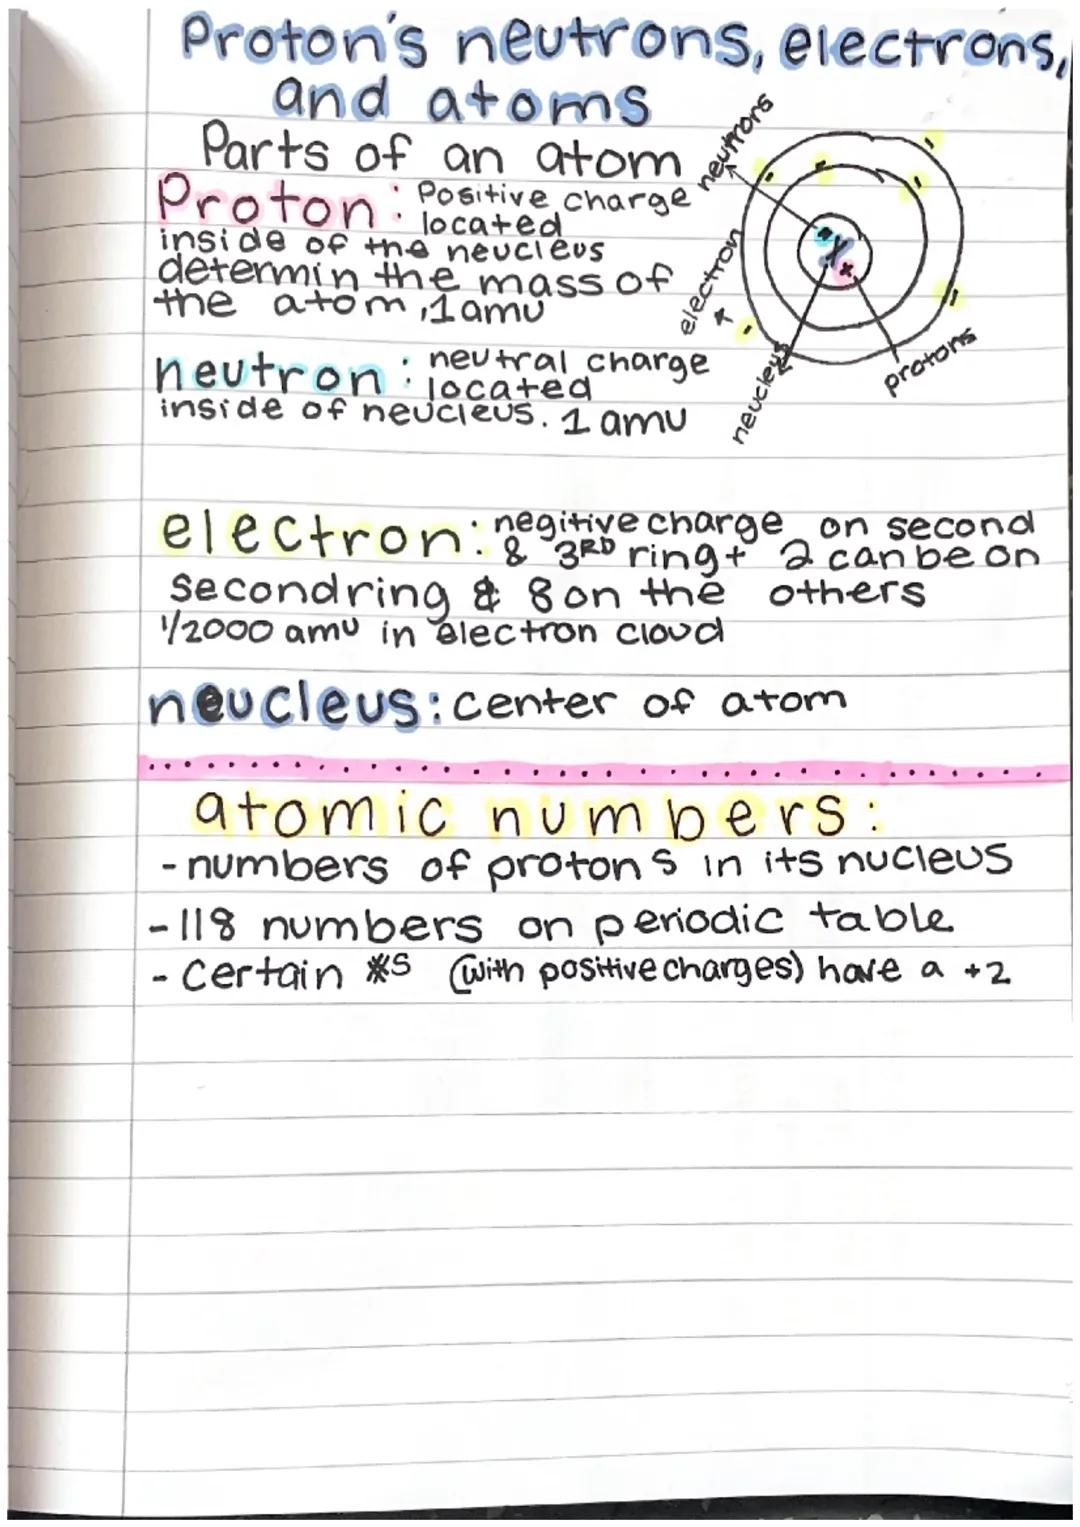 Proton's neutrons, electrons,
and atoms
Parts of an atom
Proton: Positive charge
located
inside of the neucleus
determin the mass of
the atom, 1amu
neutrons
electron
neucleus
protons
neutron: neutral charge
located
inside of neucleus. 1 amu
electron: negitive charge on second
& 3RD ring + 2 can be on
second ring & 8 on the others
1/2000 amu in electron cloud
neucleus: center of atom
atomic numbers:
- numbers of protons in its nucleus
- 118 numbers on periodic table
- Certain #s (with positive charges) have a +2